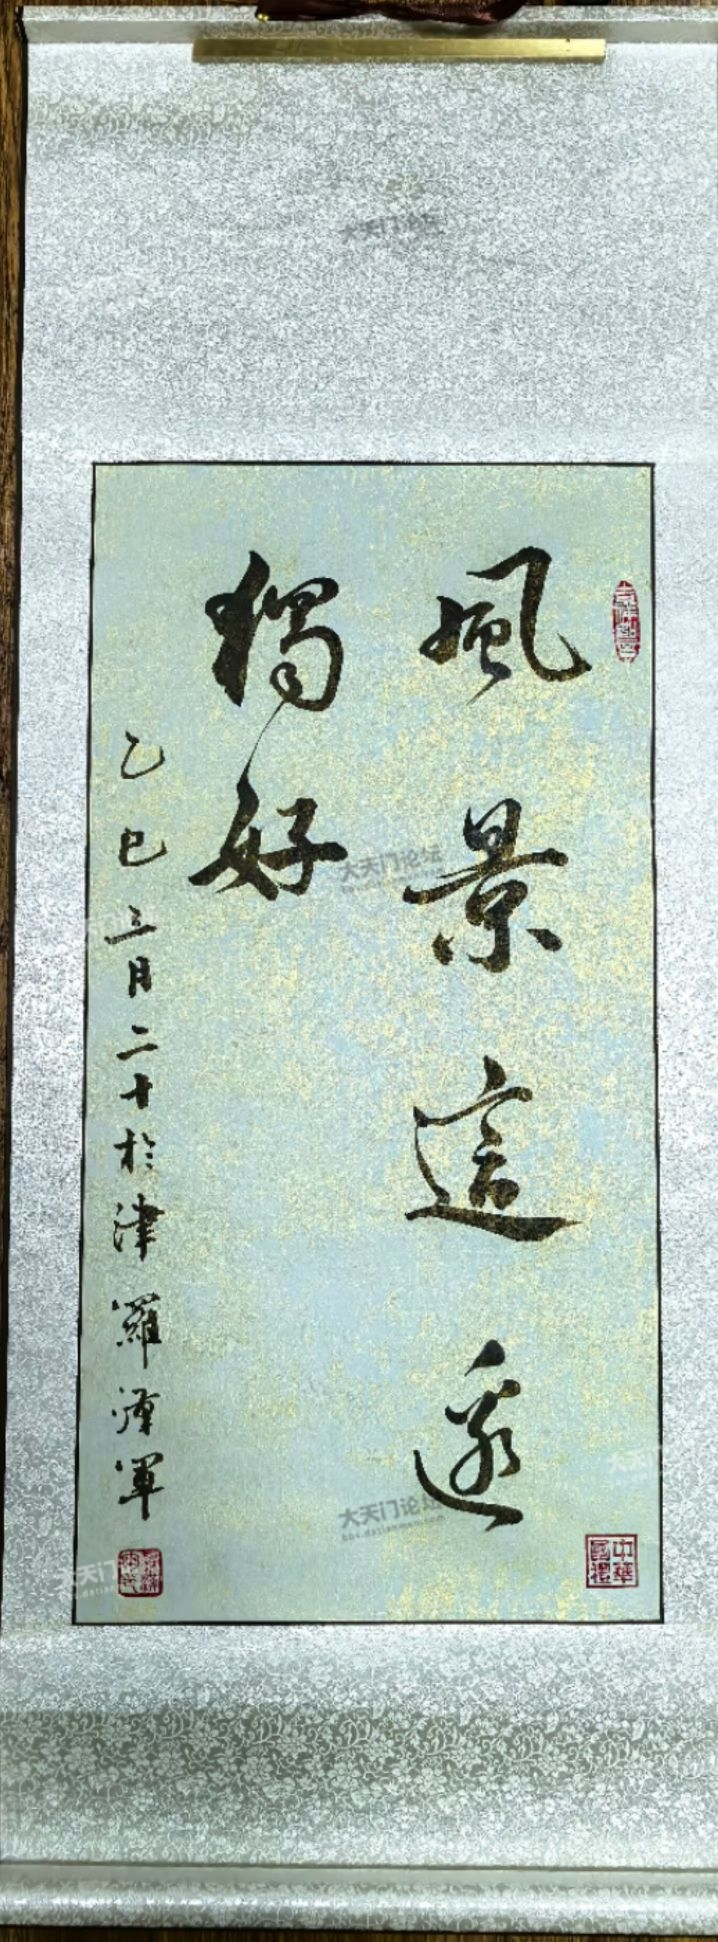 風景這邊
獨好
乙巳三月二十於津羅濤軍
中華
國禮
大天门论坛
大天门论坛
大天门论坛